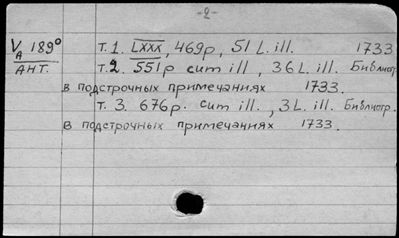 -2-
VA 189° т. 1. LXXX, 469p, 51 L. ill. 1733
АНТ. т. 2. 551p cum ill, 36 L. ill. Библиогр.
в подстрочных примечаниях 1733.
т. 3. 676p. cum ill., 3 L. ill. Библиогр.
в подстрочных примечаниях 1733.